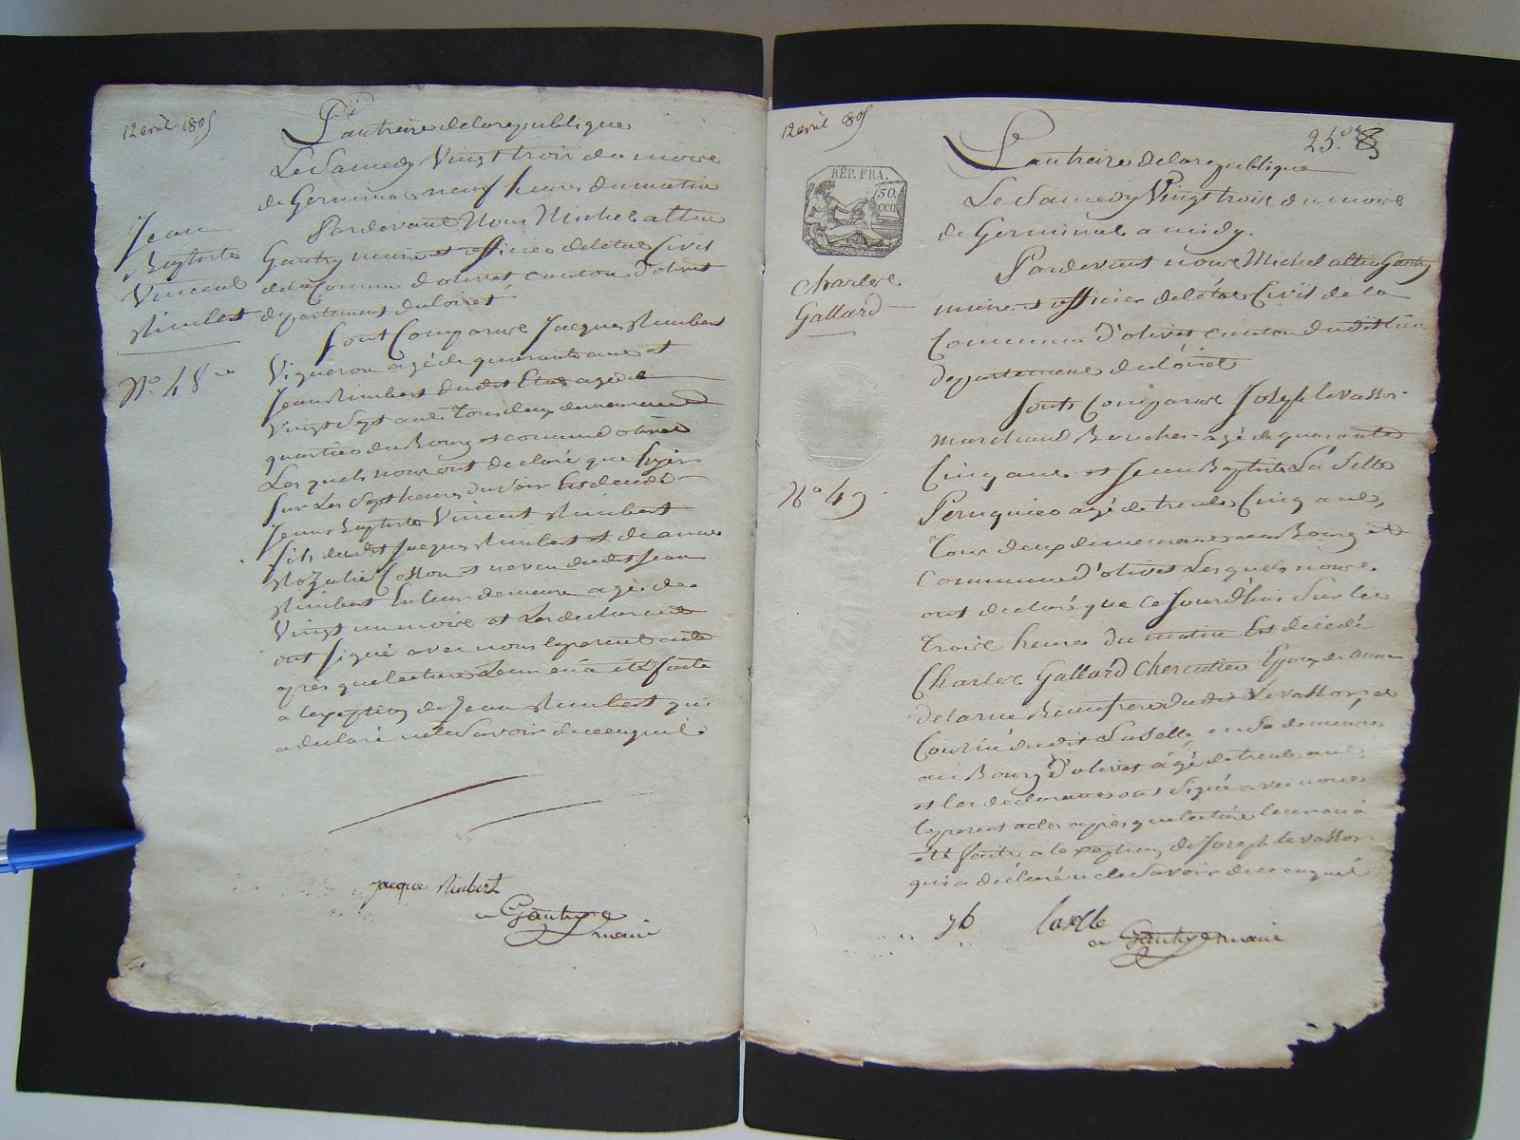 12 avril 1805
L'an treize de la republique
Le Samedy Vingt trois du moire
de Germinal neuf heures du matin
Pardevant Nous Michel altin
Gautry maire et officier de l'état Civil
de la Commune d'olivet canton d'olivet
departement du loiret
Jean
Baptiste
Vincent
Rimbert
No. 48
Sont Comparus Jacques Rimbert
Vigneron agé de quarante ans et
Jean Rimbert dudit Etat agé de
Vingt Sept ans Tous deux demeurand
quartier du Bourg et commune d'olivet
Les quels nous ont declaré que hyer
Sur Les Sept heures du soir Est decedé
Jean Baptiste Vincent Rimbert
fils dudit Jacques Rimbert et de anne
Rozalie Cosson et neveu dudit Jean
Rimbert En leur demeure agé de
Vingt un moire et Les declarants
ont Signé avec nous le present acte
apres que lecture Leur en a eté faite
a l'exeption de Jean Rimbert qui
a declaré ne Savoir de ce enquil
jacque Rimbert
Gautry
maire
12 avril 1805
25
RÉP. FRA.
50
CEN
L'an treize de la republique
Le Samedy Vingt trois du moire
de Germinal a midy.
Pardevant nous Michel altin Gautry
maire et officier de l'état Civil de la
Commune d'olivet canton dudit lieu
departement du loiret
Charles
Gallard
No 49
Sont Comparus Joseph levassor
marchand Boucher agé de quarante
Cinq ans et Jean Baptiste La Selle
Peruquier agé de trente Cinq ans,
Tous deux demeurans au Bourg et
Commune d'olivet Lesquels nous
ont declaré que ce Jourd'hui Sur les
Troix heures du matin Est décédé
Charles Gallard Chercutier Epoux de anne
delarue Beaufrere dudit Levassor et
Cousin dudit LaSelle en Sa demeure
au Bourg d'olivet agé de trente ans
et les declarans ont Signé avec nous
le present acte apres que lecture leur en a
été faite a l'exeption de Joseph levassor
qui a déclaré ne le Savoir de ce enquil
lasele
Gautry maire